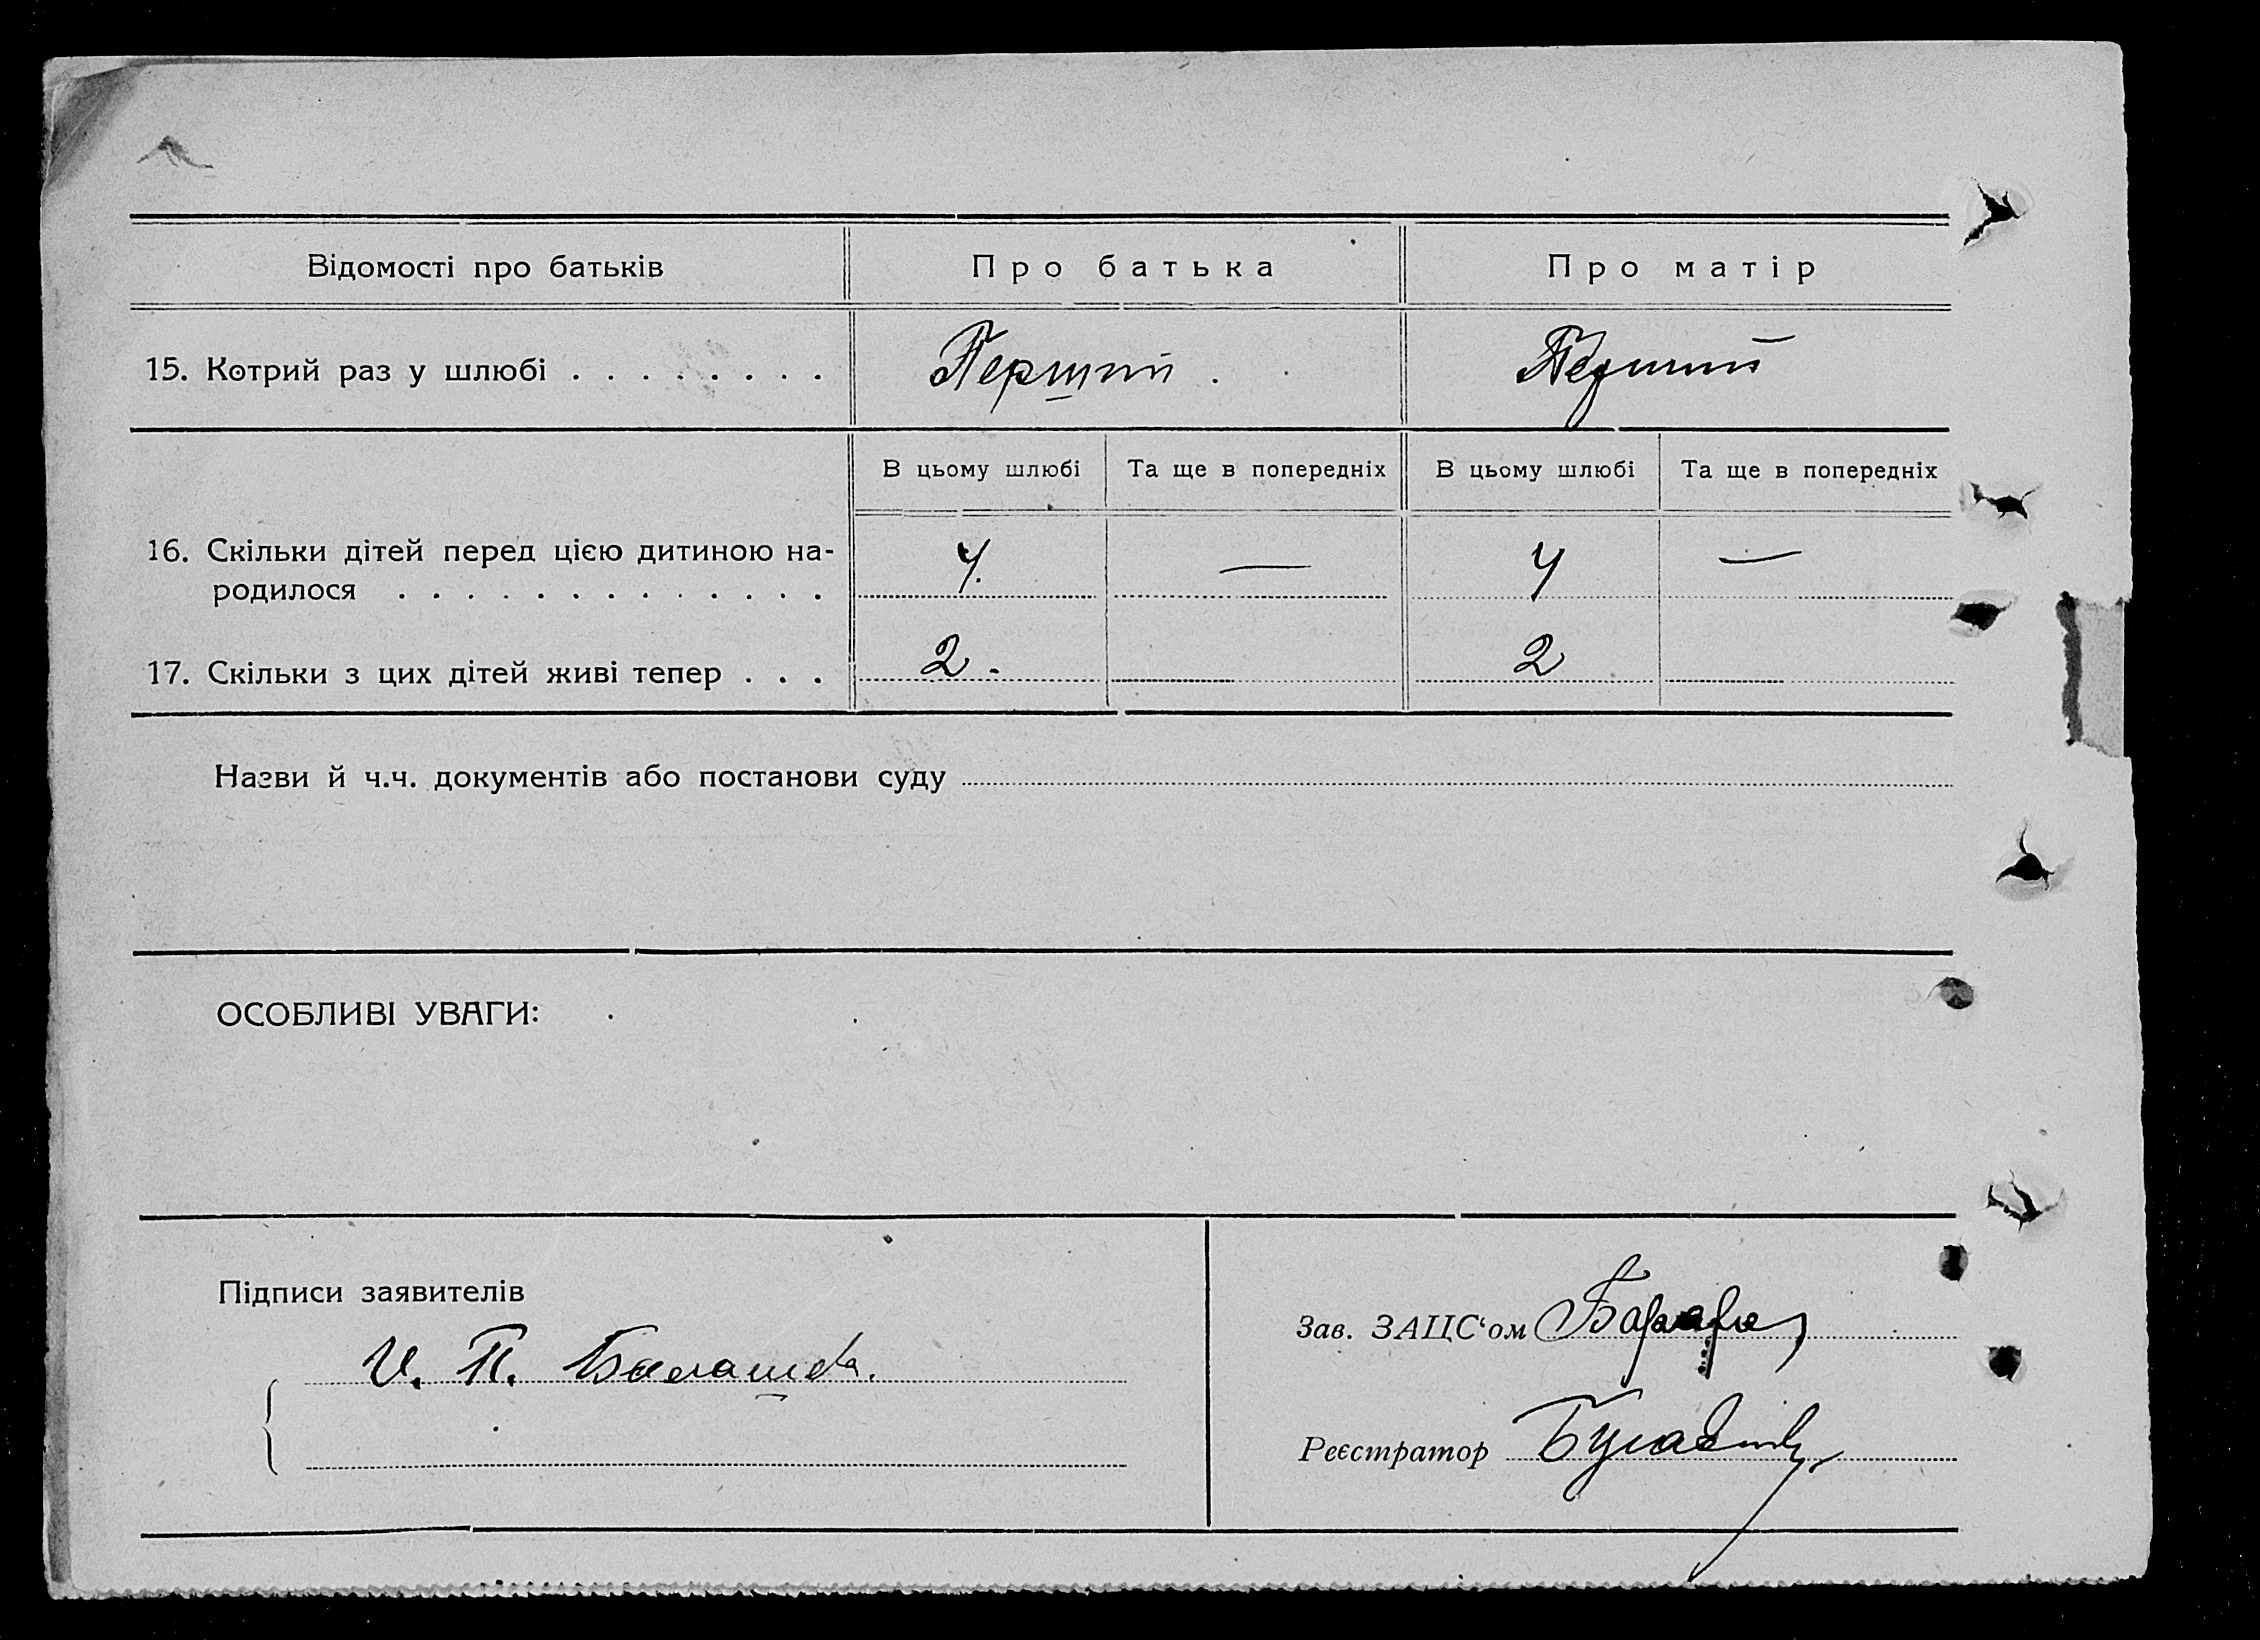 Відомості про батьків
Про батька
Про матір
15. Котрий раз у шлюбі . . . . . . . .
Перший
Перший
В цьому шлюбі
Та ще в попередніх
В цьому шлюбі
Та ще в попередніх
16. Скільки дітей перед цією дитиною на-
родилося . . . . . . . . . . . . .
4.
—
4
—
17. Скільки з цих дітей живі тепер . . .
2.
2
Назви й ч.ч. документів або постанови суду
ОСОБЛИВІ УВАГИ:
Підписи заявителів
И. П. Балашова.
Зав. ЗАЦС‘ом
Реєстратор